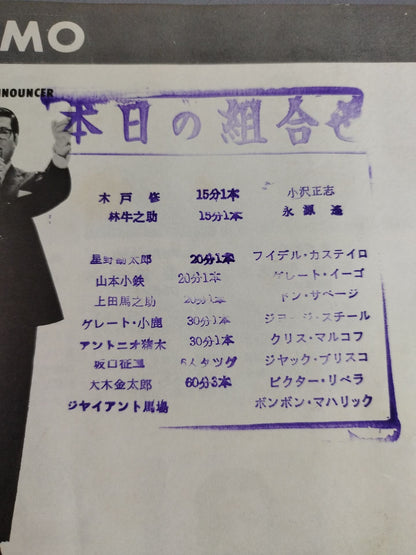 MO
NOUNCER
本日の組合せ
木戸修 15分1本 小沢正志
林牛之助 15分1本 永源遙
星野勘太郎 20分1本 フイデル・カステイロ
山本小鉄 20分1本 グレート・イーゴ
上田馬之助 20分1本 ドン・サベージ
グレート・小鹿 30分1本 ジョージ・スチール
アントニオ猪木 30分1本 クリス・マルコフ
坂口征二 6人タッグ ジヤック・ブリスコ
大木金太郎 60分3本 ビクター・リベラ
ジヤイアント馬場 ボンボン・マハリック